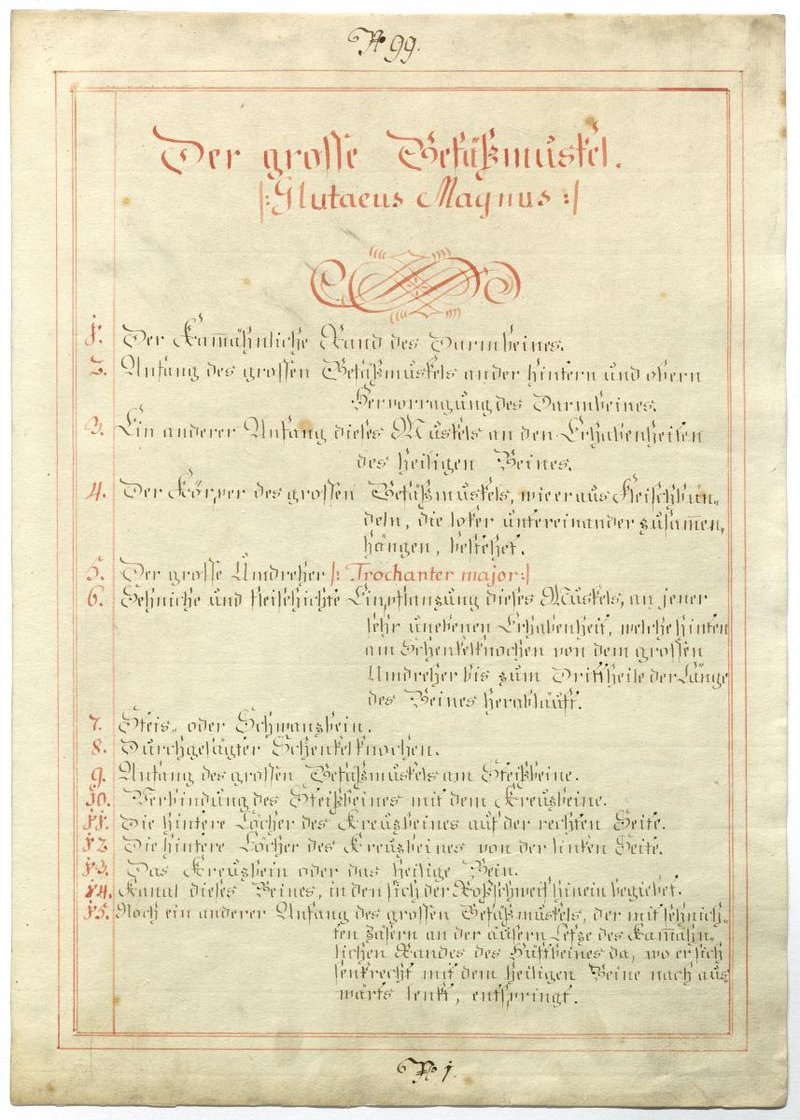 No 99.
Der grosse Gesäßmuskel.
|: Glutaeus Magnus :|
1. Der Kam̄ähnliche Rand des Darmbeines.
2. Anfang des grossen Gesäßmuskels an der hintern und obern
Hervorragung des Darmbeines.
3. Ein anderer Anfang dieses Muskels an den Erhabenheiten
des heiligen Beines.
4. Der Körper des grossen Gesäßmuskels, wie er aus Fleischbün„
deln, die loker untereinander zusam̄en„
hängen, bestehet.
5. Der grosse Umdreher |: Trochanter major :|
6. Sehniche und fleischichte Einpflanzung dieses Muskels, an jener
sehr unebenen Erhabenheit, welche hinten
am Schenkelknochen von dem grossen
Umdreher bis zum Drittheile der Länge
des Beines herabläuft.
7. Steis„ oder Schwanzbein.
8. Durchgesägter Schenkelknochen.
9. Anfang des grossen Gesäßmuskels am Steißbeine.
10. Verbindung des Steißbeines mit dem Kreuzbeine.
11. Die hintere Löcher des Kreuzbeines auf der rechten Seite.
12. Die hintere Löcher des Kreuzbeines von der linken Seite.
13. Das Kreuzbein oder das heilige Bein.
14. Kanal dieses Beines, in den sich der Roßschweif hinein begiebet.
15. Noch ein anderer Anfang des grossen Gesäßmuskels, der mit sehnich„
ten Zasern an der äusern Lefze des Kam̄ähn„
lichen Randes des Hüftbeines da, wo er sich
senkrecht mit dem heiligen Beine nach aus
wärts lenkt, entspringt.
No 1.